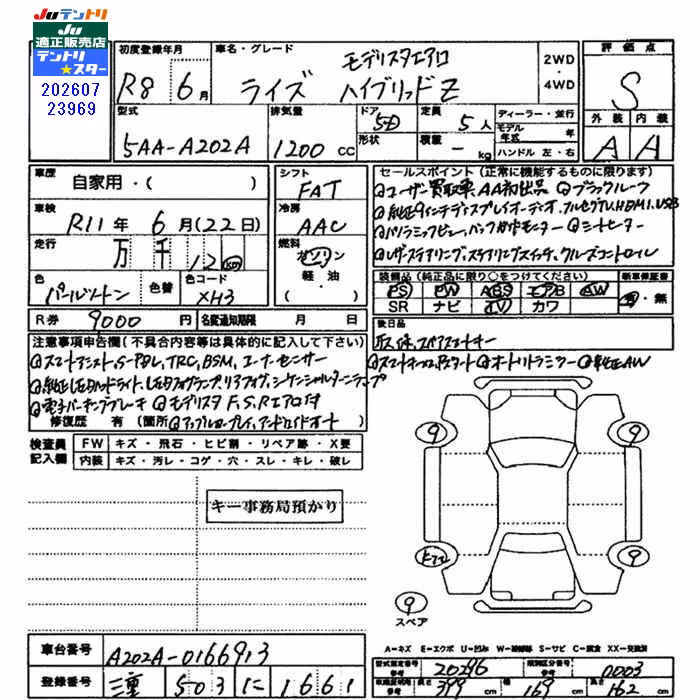 Juテントリ
Ju
適正販売店
テントリ
★スター
202607
23969
初度登録年月
R8 6月
車名・グレード
モデリスタエアロ
ライズ ハイブリッドZ
2WD
・
4WD
評価点
S
外装 内装
A A
型式
5AA-A202A
排気量
1200 cc
ドア 5D
形状
定員 5人
積載 - kg
ディーラー・並行
モデル年式 年
ハンドル 左・右
車歴
自家用・( )
車検
R11年 6月(22日)
走行
万 千 12 km
色
パールツートン
色替
色コード
XH3
シフト
FAT
冷房
AAC
燃料
ガソリン
軽・油
( )
セールスポイント(正常に機能するものに限ります)
◎ユーザー買取車 AA初出品 ◎ブラックルーフ
◎純正9インチディスプレイオーディオ、フルセグTV、HDMI、USB
◎パノラミックビュー、バックカメラモニター ◎シートヒーター
◎レザーステアリング、ステアリングスイッチ、クルーズコントロール
装備品(純正品に限り○をつけてください)
PS PW ABS エアB AW
SR ナビ TV カワ
新車保証書
有・無
R券 9000 円
名変通知期限 月 日
後日品
取、保、スペアスマートキー
注意事項申告欄(不具合内容等は具体的に記入して下さい)
◎スマートアシスト、S-PBL、TRC、BSM、コーナーセンサー
◎スマートキー、Pスタート ◎オートリトラミラー ◎純正AW
◎純正LEDヘッドライト、LEDフォグランプ、リアフォグ、シーケンシャルターンランプ
◎電子パーキングブレーキ ◎モデリスタF,S,Rエアロ付
修復歴 有 (箇所 ◎アップルカープレイ、アンドロイドオート )
検査員
記入欄
FW キズ・飛石・ヒビ割・リペア跡・X要
内装 キズ・汚レ・コゲ・穴・スレ・キレ・破レ
キー事務局預かり
9
9
9
9
スペア
A-キズ E-エクボ U-凹ミ W-補修跡 S-サビ C-腐食 XX-交換済
車台番号 A202A-0166913
登録番号 三重 503 に 1661
型式指定番号 参考 20296
類別区分番号 参考 0003
参考 399 cm 169 cm 高さ 162 cm